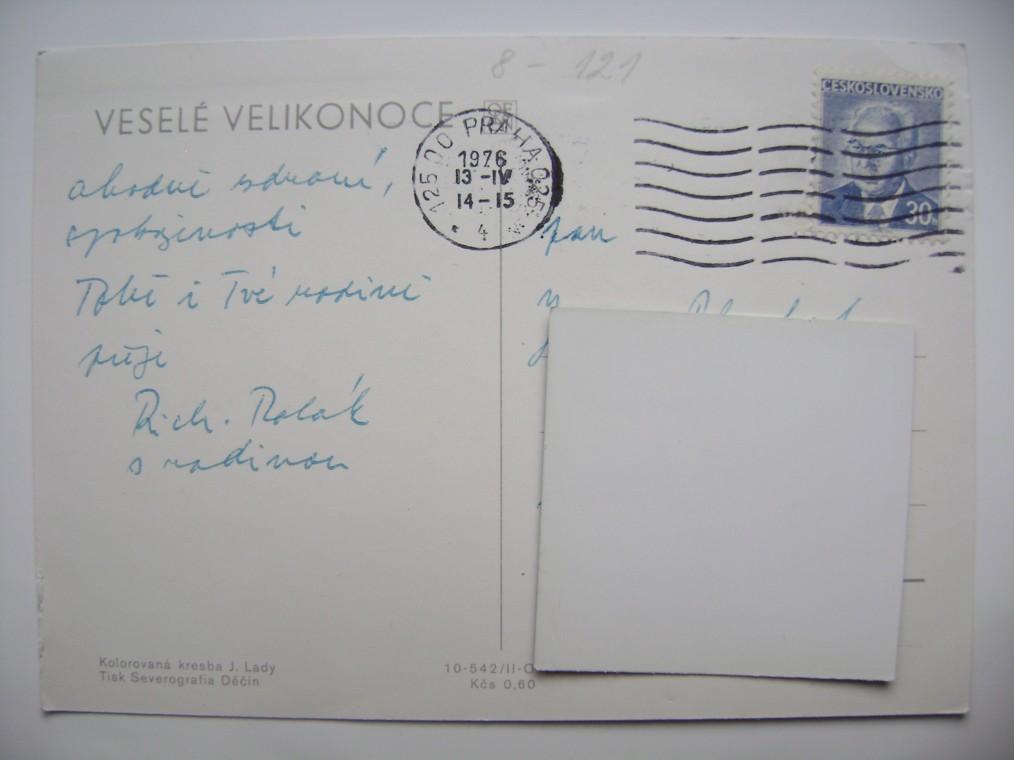 8 - 121
VESELÉ VELIKONOCE
125 00 PRAHA 025
1976
13-IV
14-15
* 4
ČESKOSLOVENSKO
30
a hodně zdraví,
spokojenosti
Tobě i Tvé rodině
přeje
Rich. Polák
s rodinou
pan
Kolorovaná kresba J. Lady
Tisk Severografia Děčín
10-542/II-O
Kčs 0,60